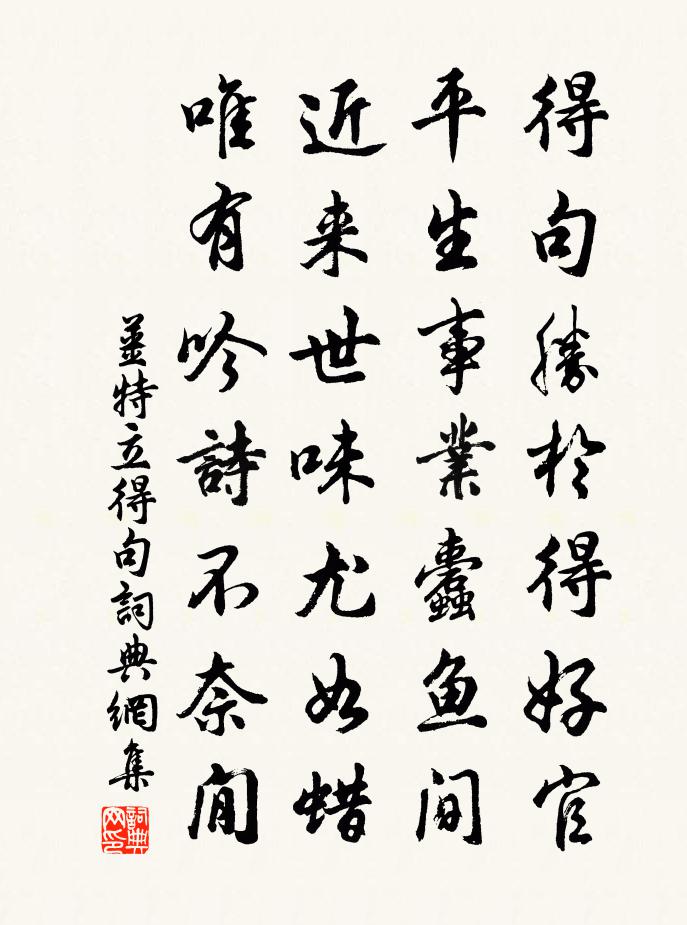 得句勝於得好官
平生事業蠹魚間
近来世味尤如蜡
唯有吟詩不奈閒
姜特立得句詞典網集
詞典网印